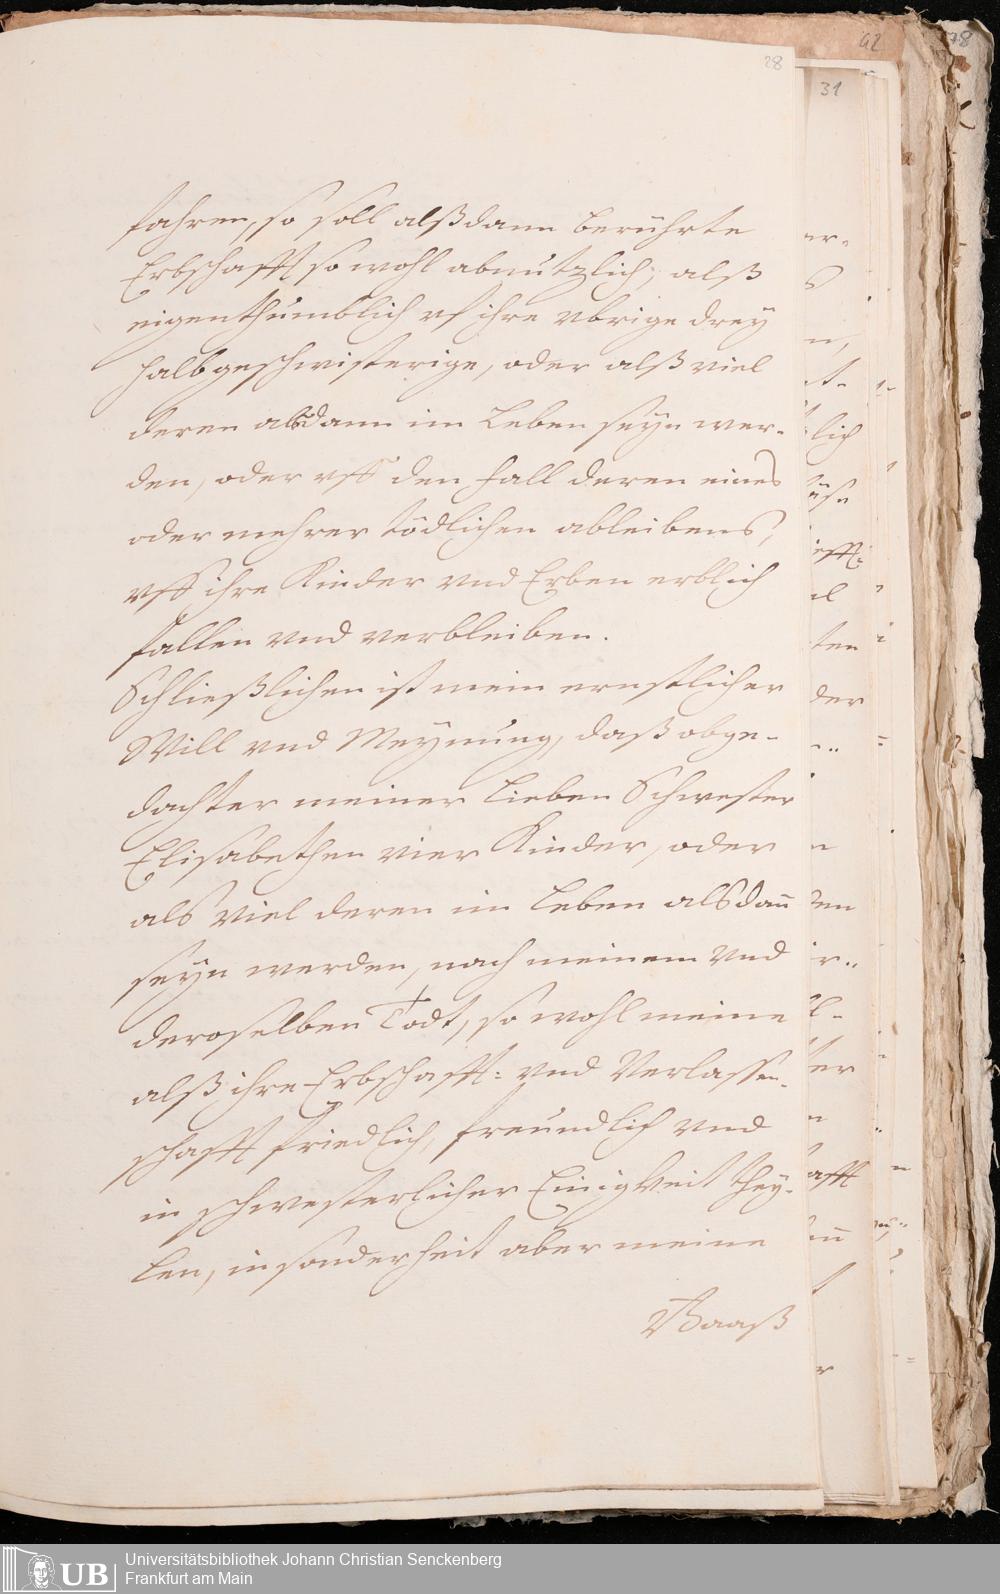 28
fahren, so soll alßdann berührte
Erbschafft so wohl abnützlich, alß
eigenthumblich vf ihre vbrige drey
halbgeschwisterige, oder alß viel
deren alsdann im Leben seyn wer-
den, oder vff den fall deren eines
oder mehrer tödlichen ableibens,
vff ihre Kinder vnd Erben erblich
fallen vnd verbleiben.
Schließlichen ist mein ernstlicher
Will vnd Meynung, daß obge-
dachter meiner lieben Schwester
Elisabethen vier Kinder, oder
als viel deren im Leben alsdan̄
seyn werden, nach meinem vnd
deroselben Todt, so wohl meine
alß ihre Erbschafft: vnd Verlassen-
schafft friedlich, freundlich vnd
in schwesterlicher Einigkeit they-
len, in sonderheit aber meine
Baaß
31
42
78
lich
ten
der
Universitätsbibliothek Johann Christian Senckenberg
Frankfurt am Main
UB